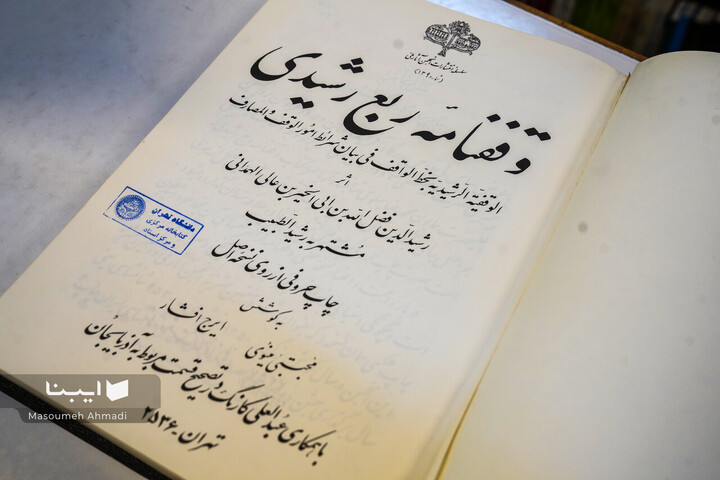 سلسله انتشارات انجمن آثار ملی
وقفنامه ربع رشیدی
الوقفیة الرشیدیة بخط الواقف فی بیان شرائط امور الوقف و المصارف
اثر
رشیدالدین فضل الله بن ابی الخیر بن عالی الهمدانی
مشتهر به رشید الطبیب
چاپ حروفی از روی نسخه اصل
به کوشش
مجتبی مینوی ایرج افشار
با همکاری عبدالعلی کارنگ در تصحیح قسمت مربوط به آذربایجان
تهران - ۲۵۳۶
دانشگاه تهران
کتابخانه مرکزی
و مرکز اسناد
ایبنا
Masoumeh Ahmadi